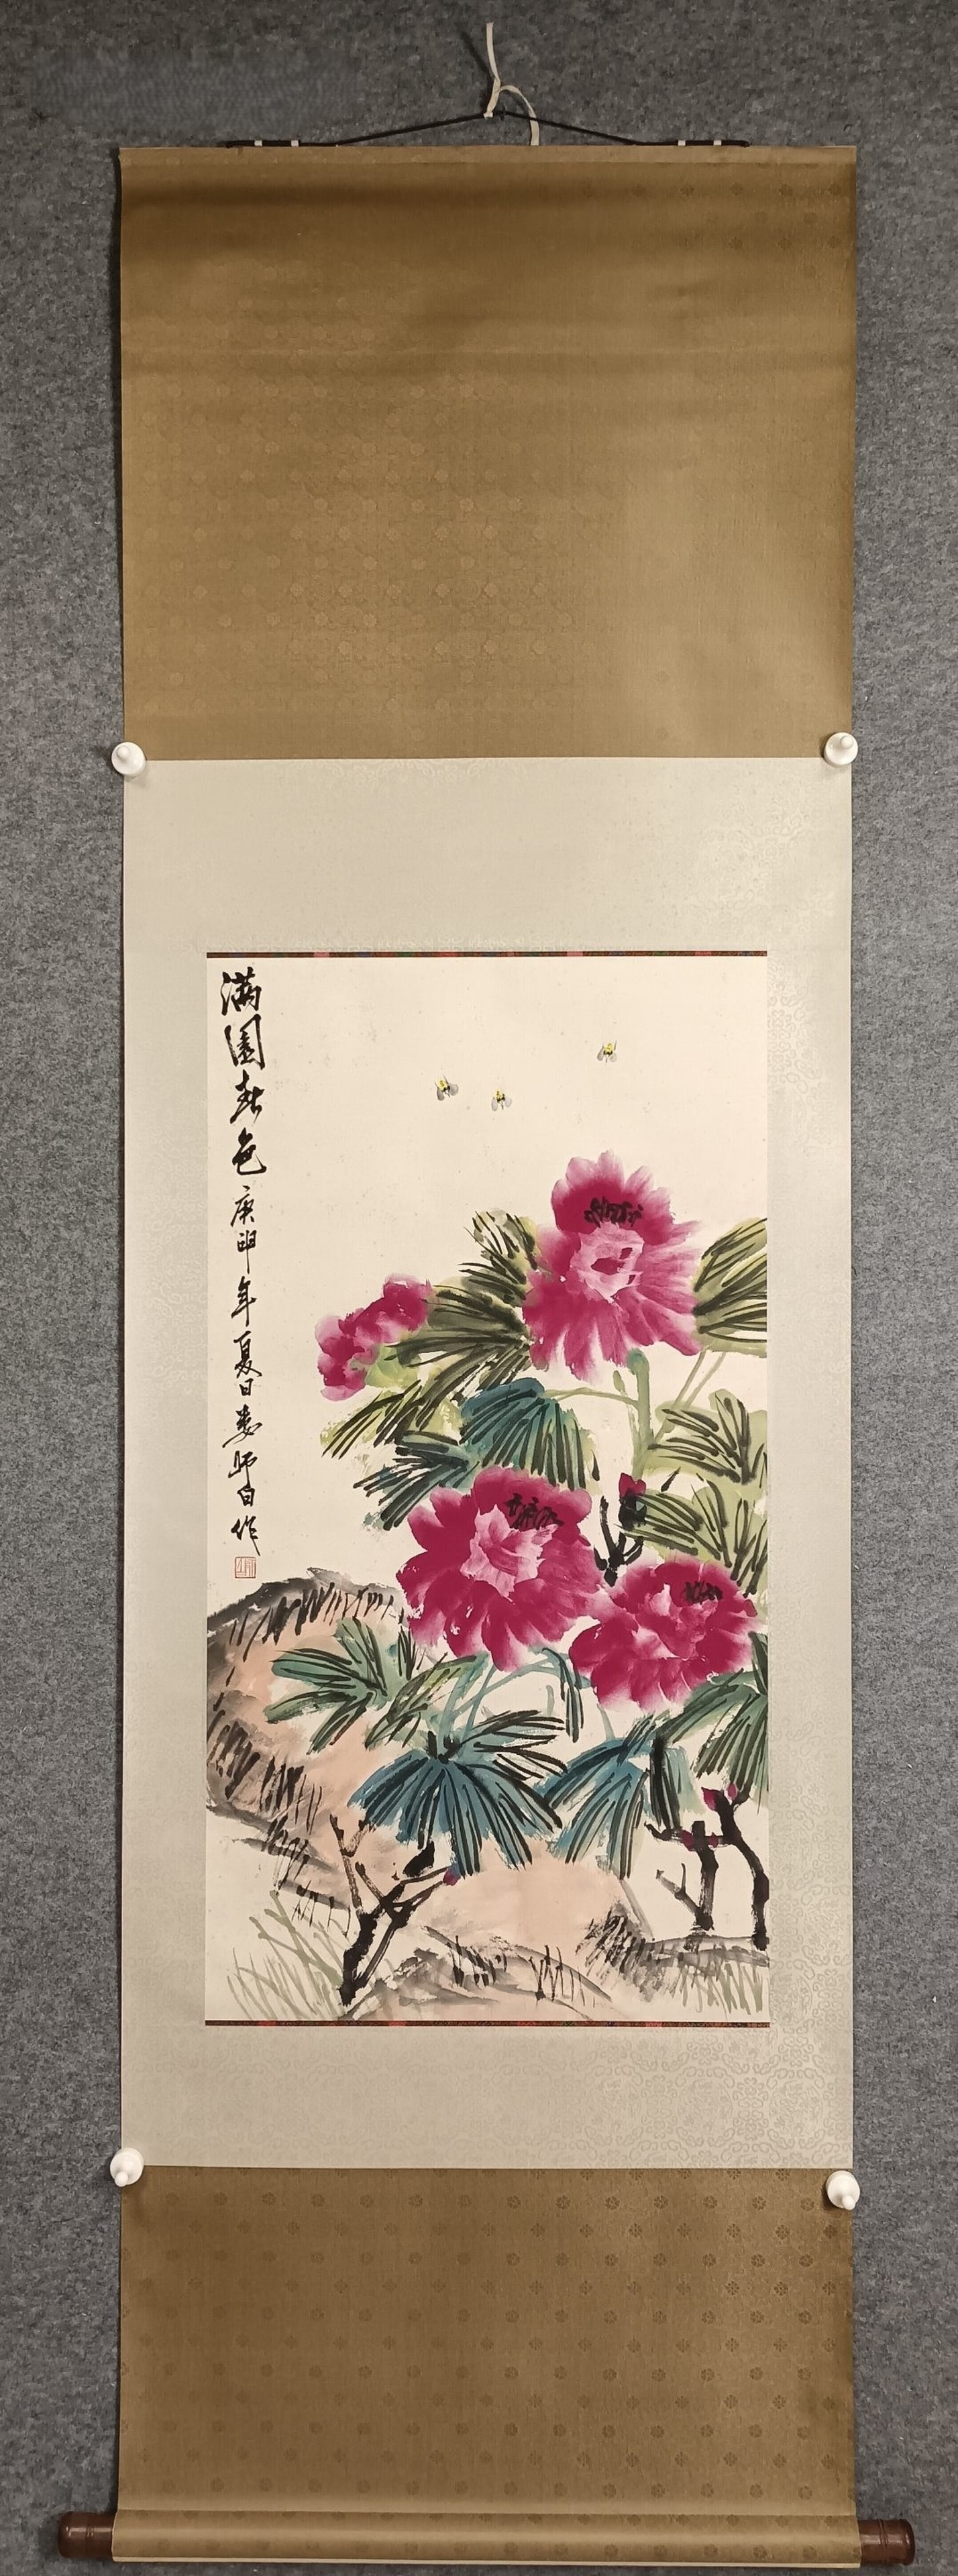 满园春色庚申年夏日娄师白作